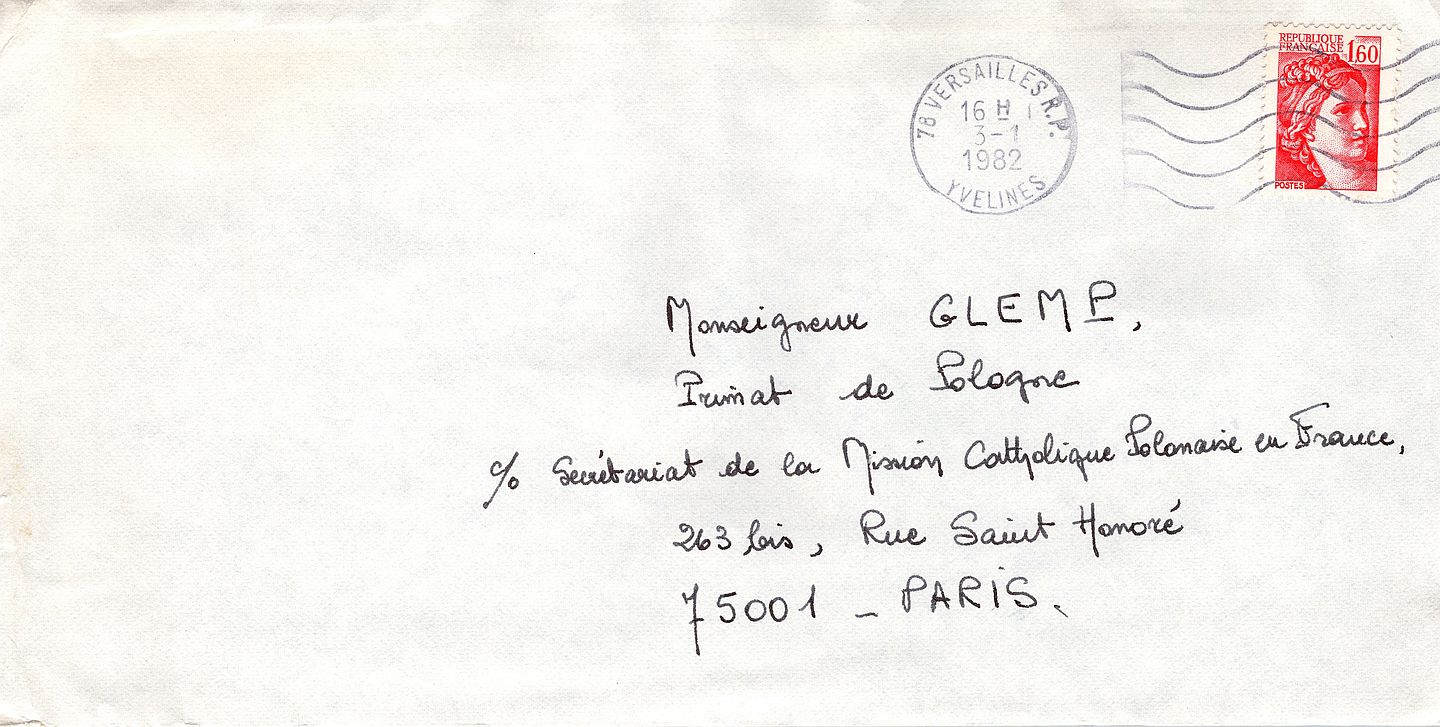 REPUBLIQUE
FRANÇAISE 1,60
POSTES
78 VERSAILLES R.P.
16 H
3-1
1982
YVELINES
Monseigneur GLEMP,
Primat de Pologne
c/o Secrétariat de la Mission Catholique Polonaise en France,
263 bis, Rue Saint Honoré
75001 - PARIS.